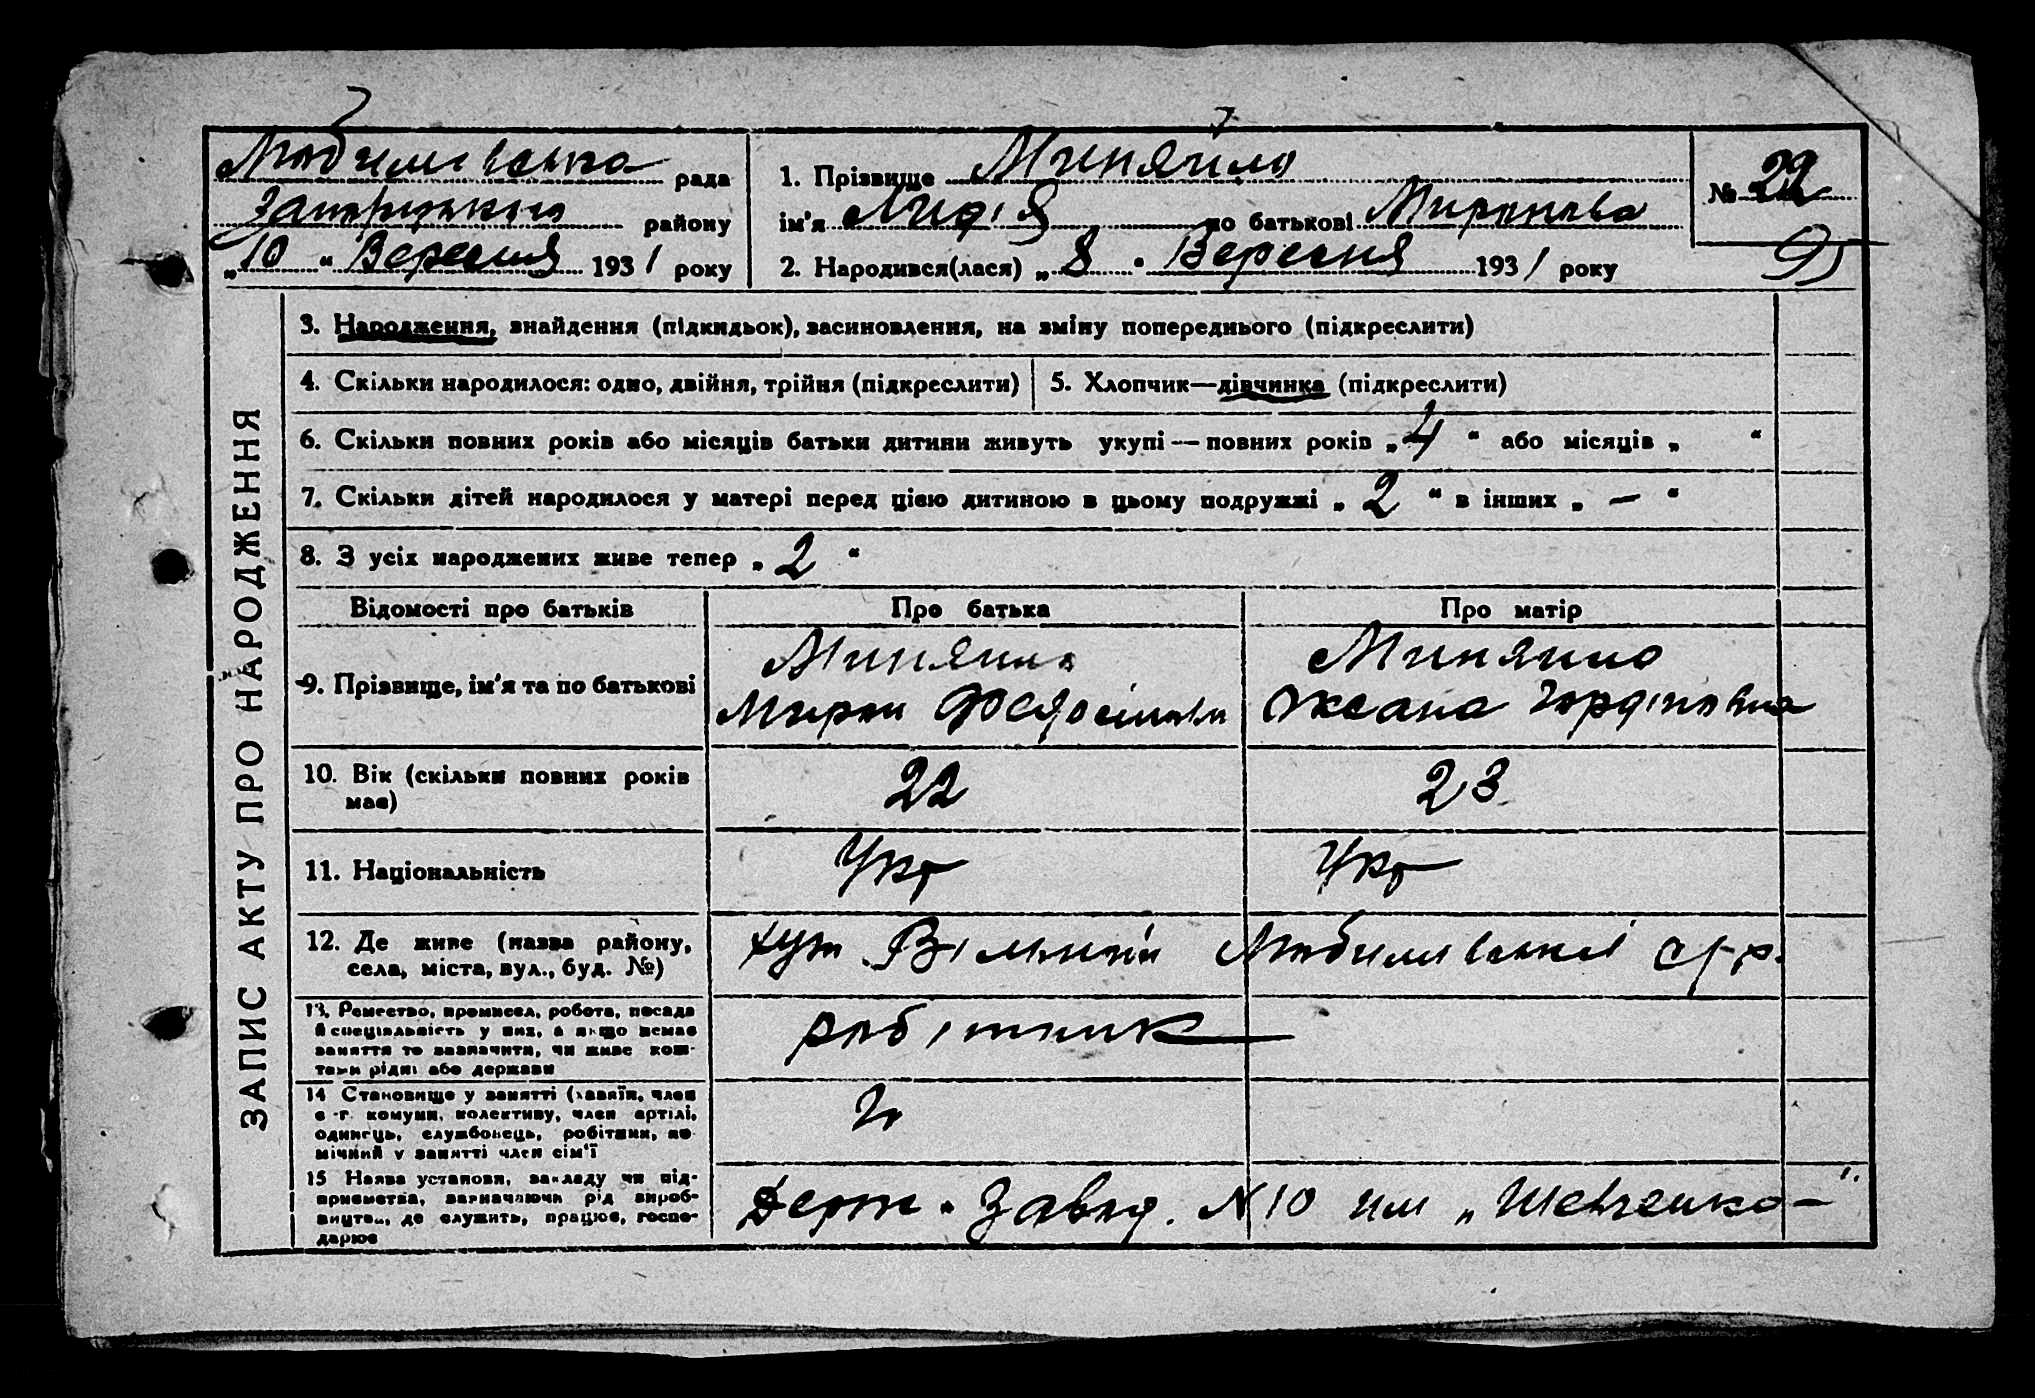 рада 1. Прізвище Миняйло № 22
району ім'я Лидія по батькові Миронова
„10“ Вересня 1931 року 2. Народився(лася) „8“ Вересня 1931 року
ЗАПИС АКТУ ПРО НАРОДЖЕННЯ
3. Народження, знайдення (підкидьок), засиновлення, на зміну попереднього (підкреслити)
4. Скільки народилося: одно, двійня, трійня (підкреслити) 5. Хлопчик—дівчинка (підкреслити)
6. Скільки повних років або місяців батьки дитини живуть укупі — повних років „4“ або місяців „ “
7. Скільки дітей народилося у матері перед цією дитиною в цьому подружжі „2“ в інших „—“
8. З усіх народжених живе тепер „2“
Відомості про батьків Про батька Про матір
9. Прізвище, ім'я та по батькові
Миняйло Миняйло
Мирон Оксана Гордіївна
10. Вік (скільки повних років
має)
22 23
11. Національність Укр Укр
12. Де живе (назва району,
села, міста, вул., буд. №)
хут. Вільний с/р.
13. Ремество, промисел, робота, посада
й спеціяльність у них, а якщо немає
заняття то зазначити, чи живе кош-
тами рідні або держави
робітник
14 Становище у занятті (хазяїн, член
с.-г. комуни, колективу, член артілі,
одинець, службовець, робітник, по-
мічний у занятті член сім'ї
15 Назва установи, закладу чи під-
приємства, зазначаючи рід вироб-
ництва, де служить, працює, госпо-
дарює
Держ. Завод. N 10 им „Шевченко“